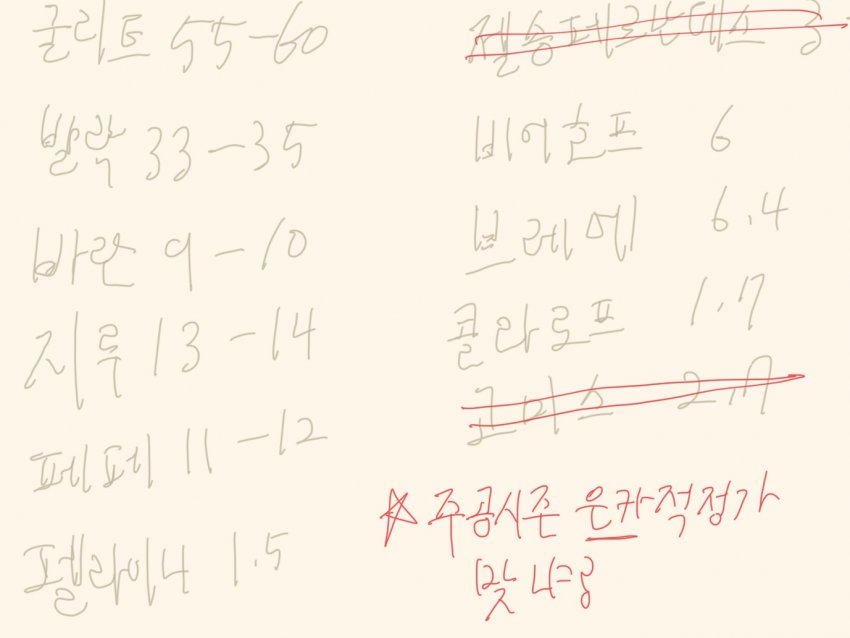 굴리트 55-60
발락 33-35
바란 9-10
지루 13-14
페페 11-12
펠라이니 1.5
젤송페르난데스 3
비어호프 6
브레메 6.4
콜라로프 1.7
코마스 2.7
☆ 주공시즌 은카적정가
맞나용